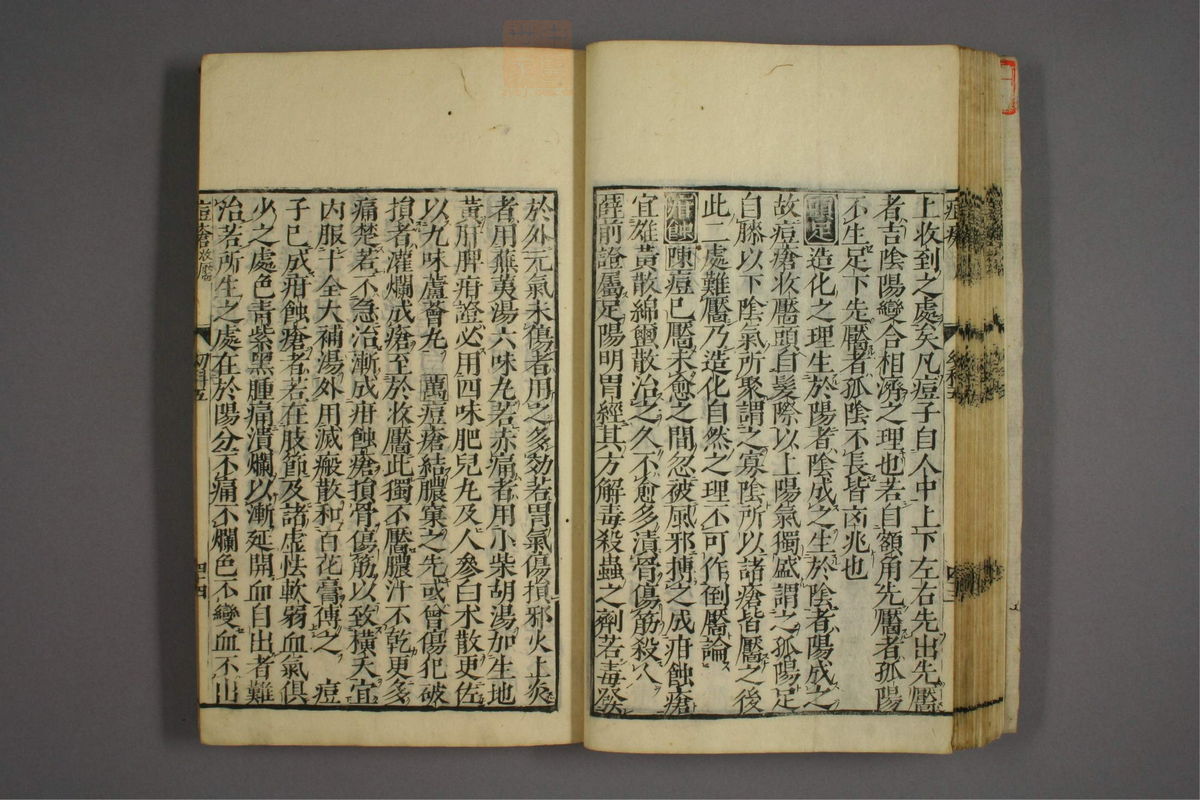 上收到之處矣凡痘子自人中上下左右先出先靨
者吉陰陽變合相濟之理也若自額角先靨者孤陽
不生足下先靨者孤陰不長皆㐫兆也
頭足 造化之理生於陽者陰成之生於陰者陽成之
故痘瘡收靨頭自髮際以上陽氣獨盛謂之孤陽足
自膝以下陰氣所聚謂之寡陰所以諸瘡皆靨之後
此二處難靨乃造化自然之理不可作倒靨論
疳蝕 陳痘已靨未愈之間忽被風邪搏之成疳蝕瘡
宜雄黃散綿蠒散治之久不愈多潰骨傷筋殺人
薛前證屬足陽明胃經其方解毒殺蟲之劑若毒發
於外元氣未傷者用之多効若胃氣傷損邪火上炎
者用蕪荑湯六味丸若赤痛者用小柴胡湯加生地
黃肝脾疳證必用四味肥兒丸及人參白朮散更佐
以九味蘆薈丸 萬痘瘡結膿窠之先或曾傷犯破
損者灌爛成瘡至於收靨此獨不靨膿汁不乾更多
痛楚若不急治漸成疳蝕瘡損骨傷筋以致橫夭宜
內服十全大補湯外用滅瘢散和百花膏傅之 痘
子已成疳蝕瘡者若在肢節及諸虛怯軟弱血氣俱
少之處色青紫黑腫痛潰爛以漸延開血自出者難
治若所生之處在於陽分不痛不爛色不變血不出
痘瘡收靨
幼科五
四十四